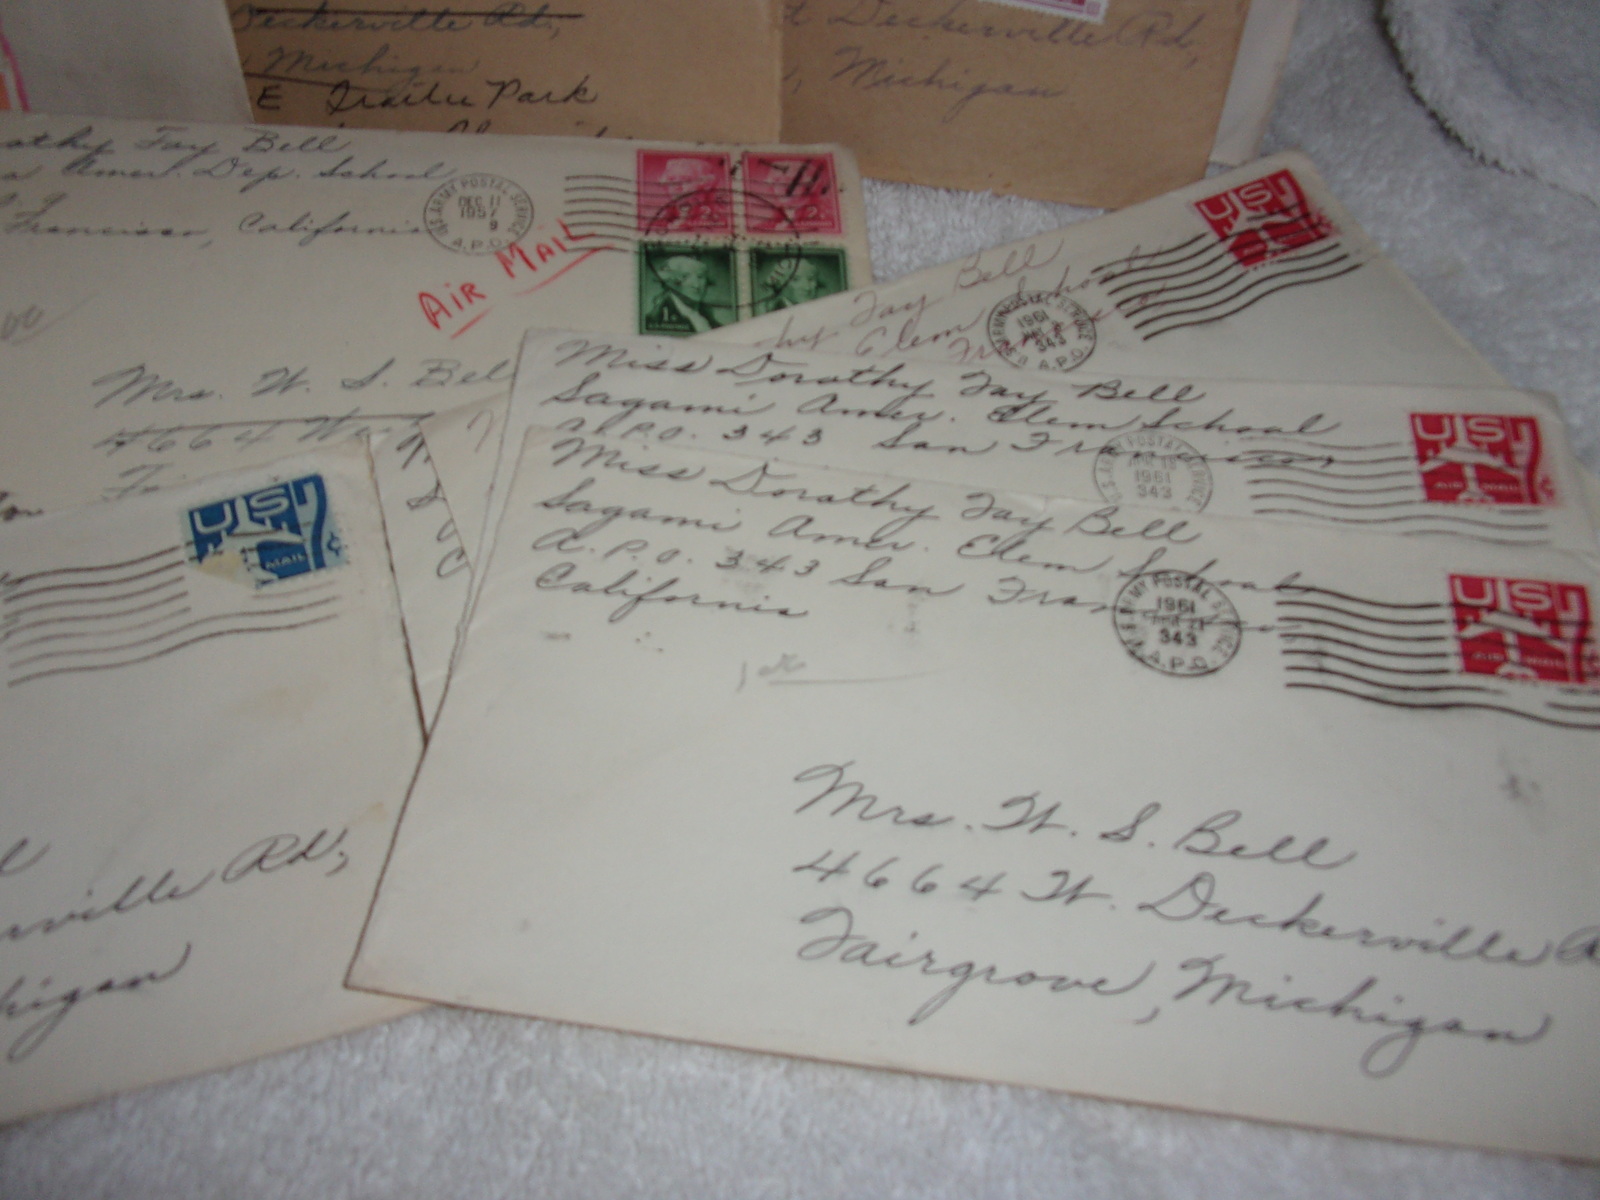 Deckerville Rd,
Michigan
E Trailer Park
Deckerville Rd,
Michigan
Fay Bell
Amer. Dep. School
Francisco, California
U.S. ARMY POSTAL SERVICE
DEC 11
1957
9
A.P.O.
AIR MAIL
1¢
Mrs. W. S. Bell
4664 W
Fay Bell
Elem School
1961
343
A.P.O.
US
Miss Dorothy Fay Bell
Sagami Amer. Elem School
A.P.O. 343 San Francisco
POSTAL SERVICE
1961
343
US
AIR MAIL
Miss Dorothy Fay Bell
Sagami Amer. Elem School
A.P.O. 343 San Francisco
California
ARMY POSTAL SERVICE
1961
343
A.P.O.
US
AIR MAIL
Mrs. W. S. Bell
4664 W. Deckerville
Fairgrove, Michigan
US
MAIL
Rd,